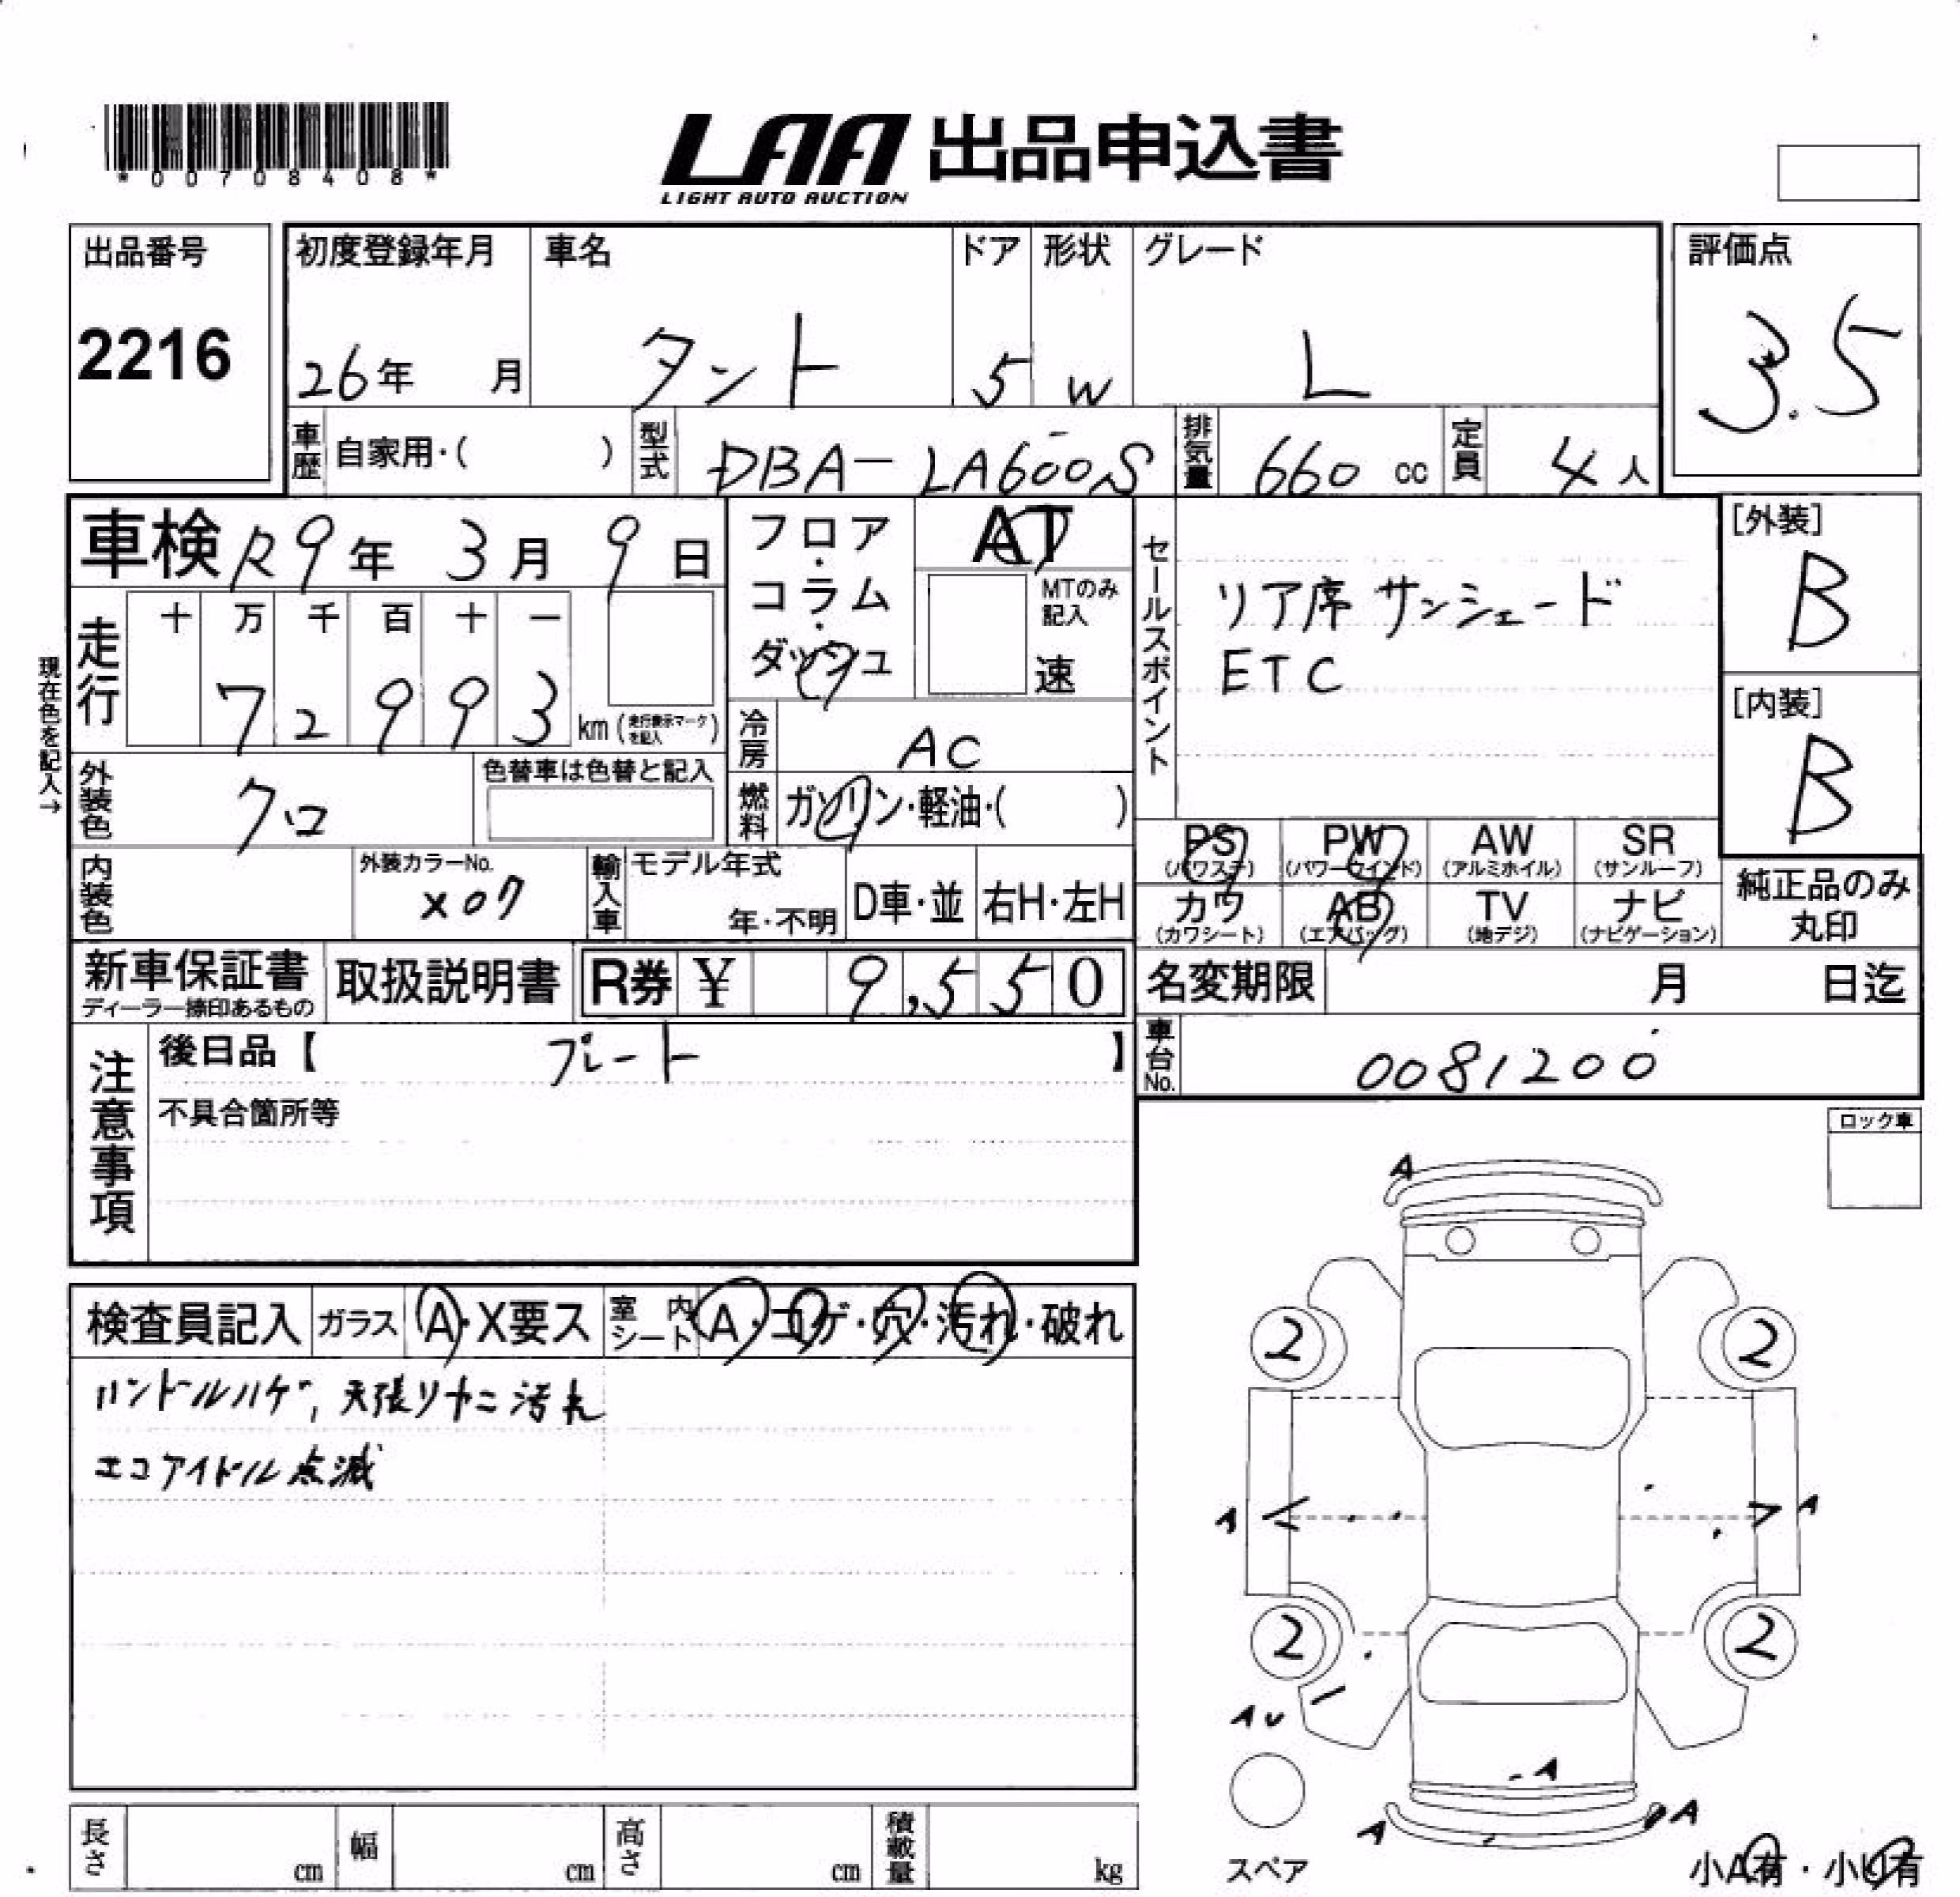 *00708408*
LAA 出品申込書
LIGHT AUTO AUCTION
出品番号
2216
初度登録年月
26年 月
車名
タント
ドア
5
形状
W
グレード
L
評価点
3.5
車歴 自家用・( )
型式 DBA-LA600S
排気量 660 cc
定員 4人
車検 R9年 3月 9日
フロア・コラム・ダッシュ
AT
MTのみ記入
速
セールスポイント
リア席 サンシェード
ETC
[外装]
B
[内装]
B
現在色を記入→
走行
十 万 千 百 十 一
7 2 9 9 3 km (走行表示マークを記入)
冷房 AC
燃料 ガソリン・軽油・( )
外装色 クロ
色替車は色替と記入
内装色
外装カラーNo.
X07
輸入車 モデル年式
年・不明
D車・並
右H・左H
PS (パワステ)
PW (パワーウインド)
AW (アルミホイル)
SR (サンルーフ)
カワ (カワシート)
AB (エアバッグ)
TV (地デジ)
ナビ (ナビゲーション)
純正品のみ丸印
新車保証書
ディーラー捺印あるもの
取扱説明書
R券 ¥ 9,550
名変期限 月 日迄
車台No. 0081200
注意事項
後日品【 プレート 】
不具合箇所等
ロック車
検査員記入
ガラス A・X要ス
室内シート A・コゲ・穴・汚れ・破れ
ハンドルハゲ, 天張りヤニ汚れ
エコアイドル点滅
A
2 2
A A
2 2
AU
A
A A
スペア
小A有・小U有
長さ cm
幅 cm
高さ cm
積載量 kg